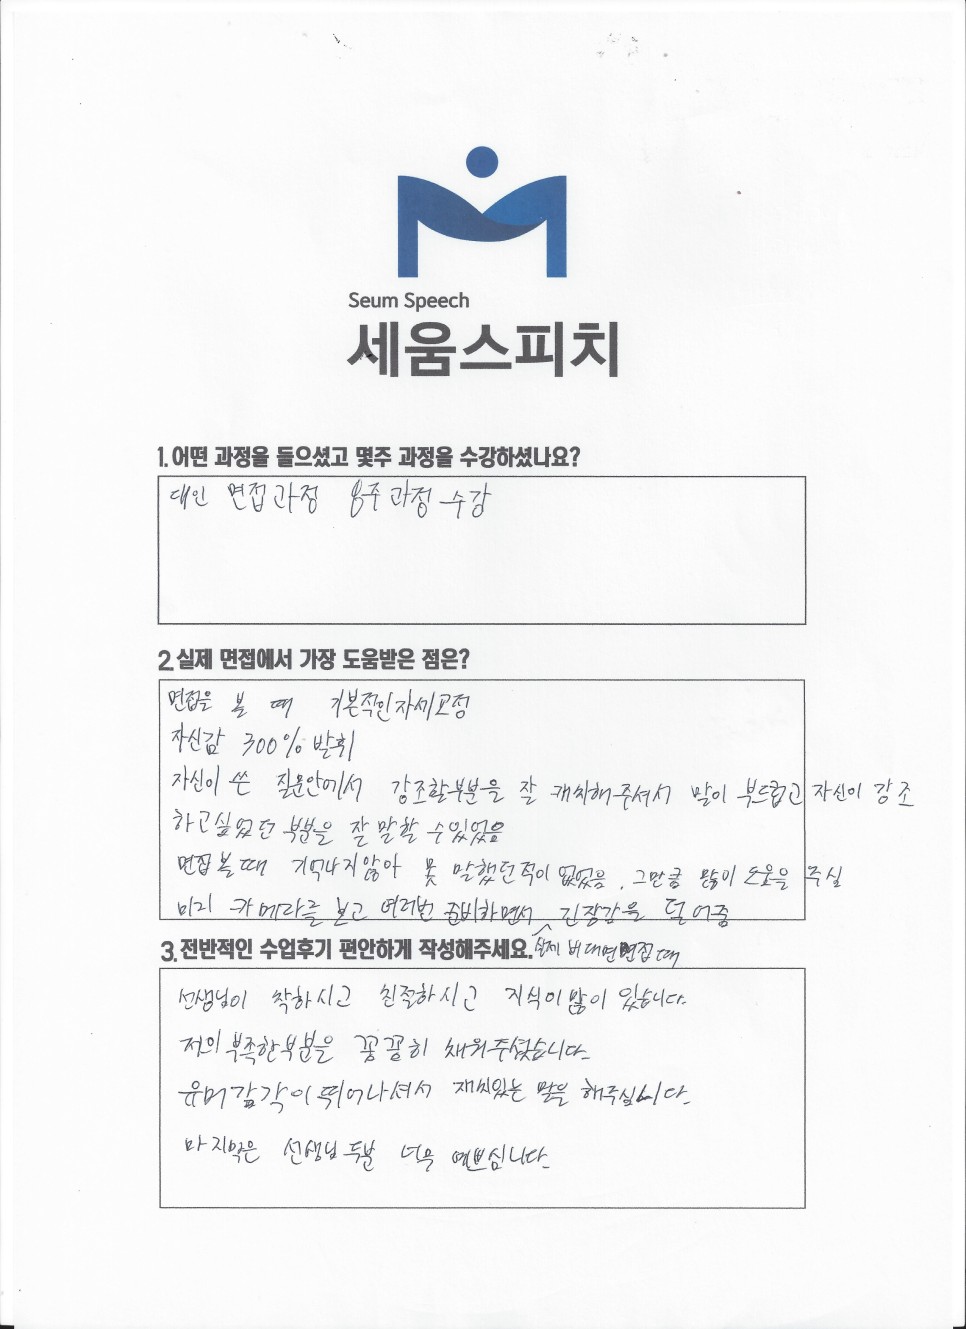 Seum Speech
세움스피치
1. 어떤 과정을 들으셨고 몇주 과정을 수강하셨나요?
대인 면접과정 8주 과정 수강
2. 실제 면접에서 가장 도움받은 점은?
면접을 볼 때 기본적인 자세교정
자신감 300% 발휘
자신이 쓴 질문안에서 강조할부분을 잘 캐치해주셔서 말이 부드럽고 자신이 강조
하고싶었던 부분을 잘 말할 수있었음
면접볼때 기억나지않아 못 말했던적이 없었음. 그만큼 많이 도움을 주심
미리 카메라를 보고 여러번 준비하면서 긴장감을 덜어줌
3. 전반적인 수업후기 편안하게 작성해주세요.
실제 비대면면접때
선생님이 착하시고 친절하시고 지식이 많이 있습니다.
저의 부족한부분을 꼼꼼히 채워주셨습니다.
유머감각이 뛰어나셔서 재씨있는 말을 해주십니다.
마지막은 선생님 두분 너무 예쁘십니다.